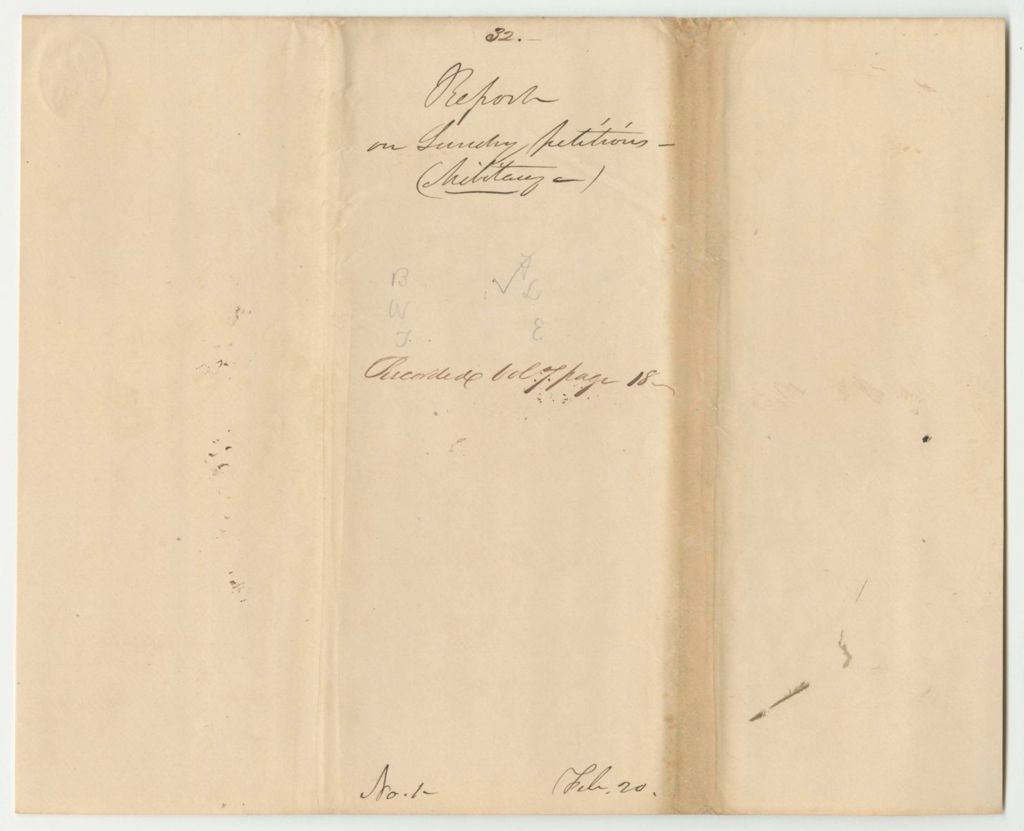 32.—
Report
on Sundry petitions—
(Military—)
A
B L
W E
J.
Recorded Vol. 7. page 18—
No. 1— Feb. 20.